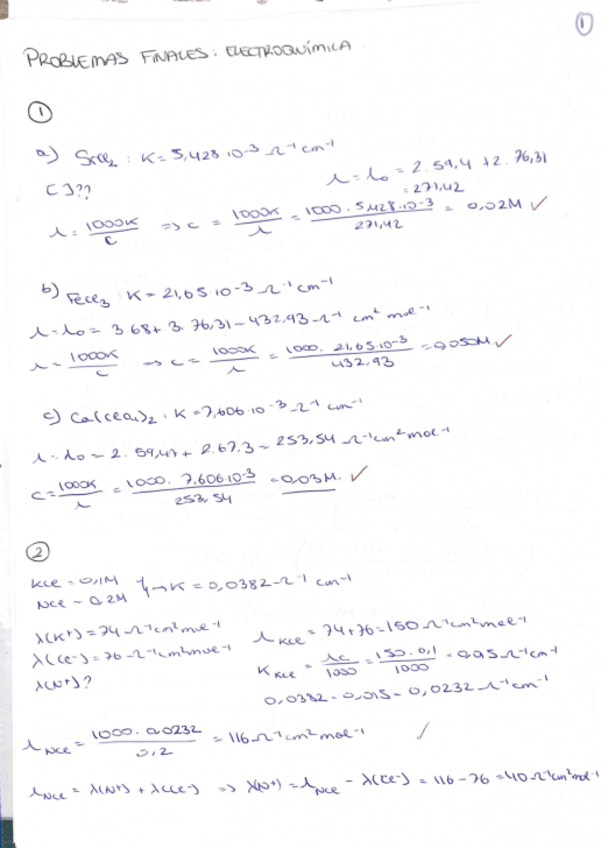 1
PROBLEMAS FINALES: ELECTROQUÍMICA
1
a) SrCl₂ : K = 5,428·10⁻³ Ω⁻¹ cm⁻¹
[ ]??
Λ = Λ₀ = 2·59,4 + 2·76,31
= 271,42
Λ = 1000K / c ⇒ c = 1000K / Λ = 1000 · 5,428·10⁻³ / 271,42 = 0,02M ✓
b) FeCl₃ : K = 21,65·10⁻³ Ω⁻¹ cm⁻¹
Λ = Λ₀ = 3·68 + 3·76,31 = 432,93 Ω⁻¹ cm² mol⁻¹
Λ = 1000K / c ⇒ c = 1000K / Λ = 1000 · 21,65·10⁻³ / 432,93 = 0,050M ✓
c) Ca(ClO₄)₂ : K = 7,606·10⁻³ Ω⁻¹ cm⁻¹
Λ = Λ₀ = 2·59,47 + 2·67,3 = 253,54 Ω⁻¹cm²mol⁻¹
c = 1000K / Λ = 1000 · 7,606·10⁻³ / 253,54 = 0,03M. ✓
2
KCl = 0,1M
NCl = 0,2M } → K = 0,0382 Ω⁻¹ cm⁻¹
λ(K⁺) = 74 Ω⁻¹cm²mol⁻¹
λ(Cl⁻) = 76 Ω⁻¹cm²mol⁻¹
λ(N⁺)?
Λ KCl = 74+76 = 150 Ω⁻¹cm²mol⁻¹
K KCl = Λc / 1000 = 150·0,1 / 1000 = Ω⁻¹cm⁻¹
0,0382 - 0,015 = 0,0232 Ω⁻¹cm⁻¹
Λ NCl = 1000 · 0,0232 / 0,2 = 116 Ω⁻¹cm² mol⁻¹ ✓
Λ NCl = λ(N⁺) + λ(Cl⁻) ⇒ λ(N⁺) = Λ NCl - λ(Cl⁻) = 116 - 76 = 40 Ω⁻¹cm²mol⁻¹